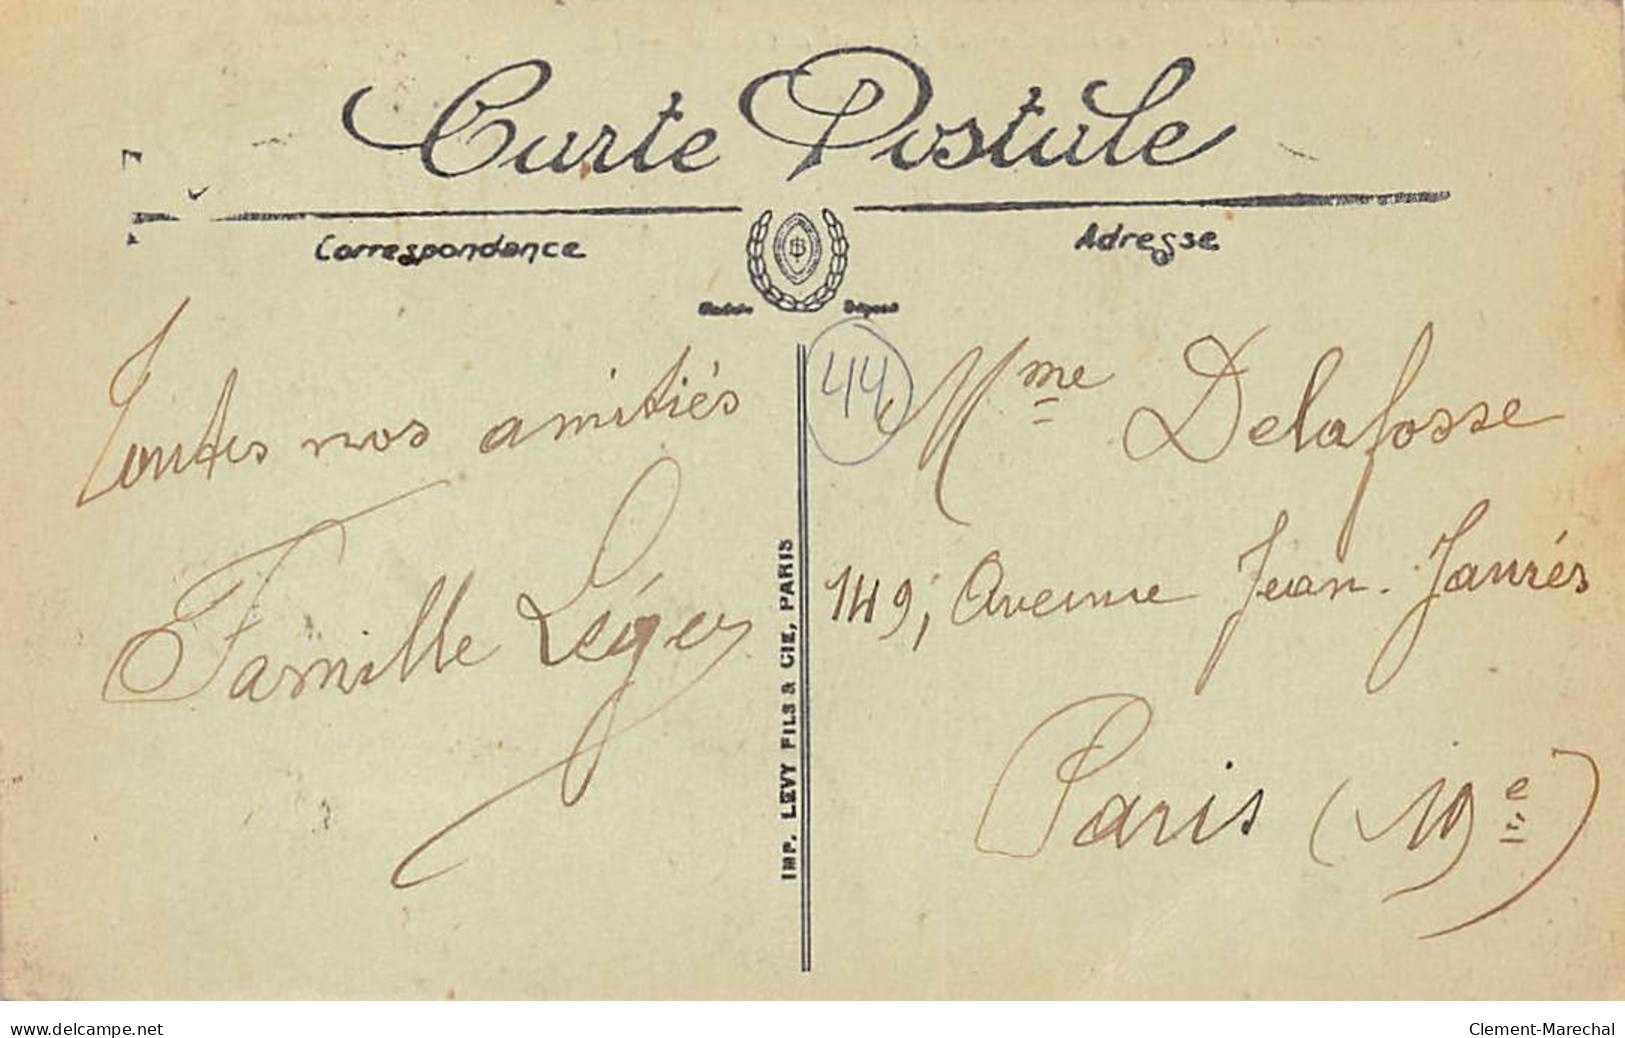 Carte Postale
Correspondance
Adresse
Modèle Déposé
44
Toutes nos amitiés
Famille Léger
IMP. LEVY FILS & CIE, PARIS
Mme Delafosse
149, Avenue Jean-Jaurès
Paris (19e)
www.delcampe.net
Clement-Marechal